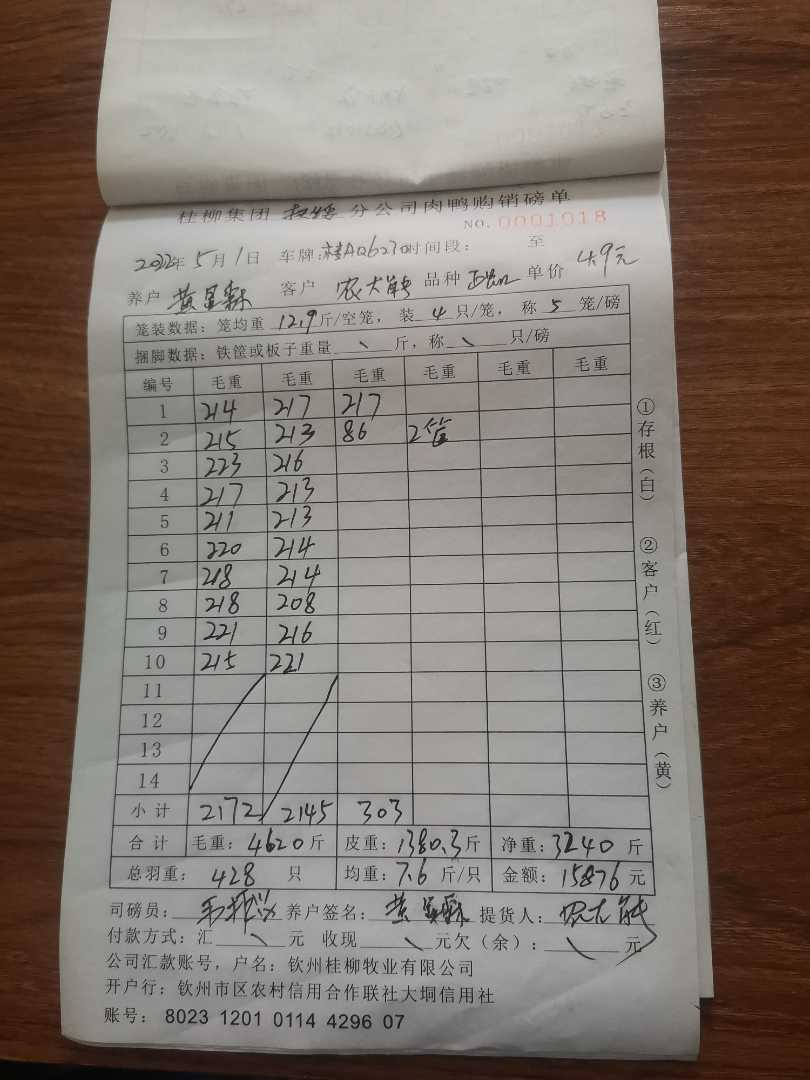 桂柳集团 分公司肉鸭购销磅单
NO. 0001018
2022年 5月 1日 车牌:桂AQ6230 时间段: 至
养户 黄 客户 农大能 品种 单价 4.9元
笼装数据: 笼均重 12.9 斤/空笼, 装 4 只/笼, 称 5 笼/磅
捆脚数据: 铁筐或板子重量 \ 斤, 称 \ 只/磅
编号 毛重 毛重 毛重 毛重 毛重 毛重
1 214 217 217
2 215 213 86 2笼
3 223 216
4 217 213
5 211 213
6 220 214
7 218 214
8 218 208
9 221 216
10 215 221
11
12
13
14
小计 2172 2145 303
合计 毛重: 4620 斤 皮重: 1380.3 斤 净重: 3240 斤
总羽重: 428 只 均重: 7.6 斤/只 金额: 15876 元
司磅员: 养户签名: 黄 提货人: 农大能
付款方式: 汇 \ 元 收现 \ 元 欠(余): \ 元
公司汇款账号, 户名: 钦州桂柳牧业有限公司
开户行: 钦州市区农村信用合作联社大垌信用社
账号: 8023 1201 0114 4296 07
①存根(白) ②客户(红) ③养户(黄)